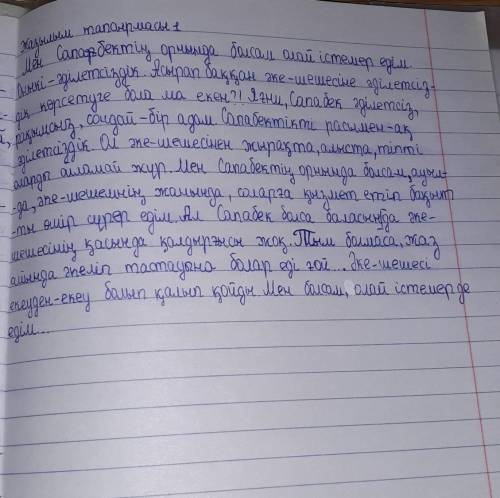 Жазылым тапсырмасы 1
Мен Сапарбектің орнында болсам олай істемер едім.
Өйткені - әділетсіздік. Асырап баққан әке-шешесіне әділетсіз-
дік көрсетуге бола ма екен?! Яғни, Сапабек әділетсіз,
рақымсыз, сондай-бір адам. Сапабектікі расымен-ақ
әділетсіздік. Ол әке-шешесінен жырақта, алыста, тіпті
оларды ойламай жүр. Мен Сапабектің орнында болсам, ауыл-
-да, әке-шешемнің жанында, соларға қызмет етіп бақыт-
ты өмір сүрер едім. Ал Сапабек болса баласын да әке-
шешесінің қасында қалдырғысы жоқ. Тым болмаса, жаз
айында әкеліп тастауына болар еді ғой... Әке-шешесі
екеуден-екеу болып қалып қойды. Мен болсам, олай істемер де
едім...